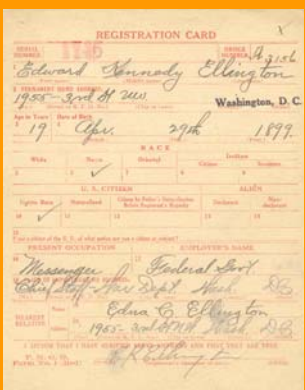 REGISTRATION CARD
SERIAL NUMBER 1146 ORDER NUMBER A 2156
1 Edward Kennedy Ellington
2 PERMANENT HOME ADDRESS
1955 - 3rd St NW Washington, D.C.
Age in Years Date of Birth
19 Apr. 29th 1899
RACE
White Negro Oriental Indian
Citizen Noncitizen
✓
U. S. CITIZEN ALIEN
Native Born Naturalized Citizen by Father's Naturalization Before Registrant's Majority Declarant Non-declarant
10 11 12 13 14
✓
15 If not a citizen of the U. S. of what nation are you a citizen or subject?
PRESENT OCCUPATION EMPLOYER'S NAME
Messenger Federal Govt.
Chief Staff - War Dept. Wash. DC
NEAREST RELATIVE Name Edna C Ellington
Address 1955 - 3rd St NW Wash. DC
I AFFIRM THAT I HAVE VERIFIED ABOVE ANSWERS AND THAT THEY ARE TRUE
P. M. G. O.
Form No. 1 (Red)
E K Ellington